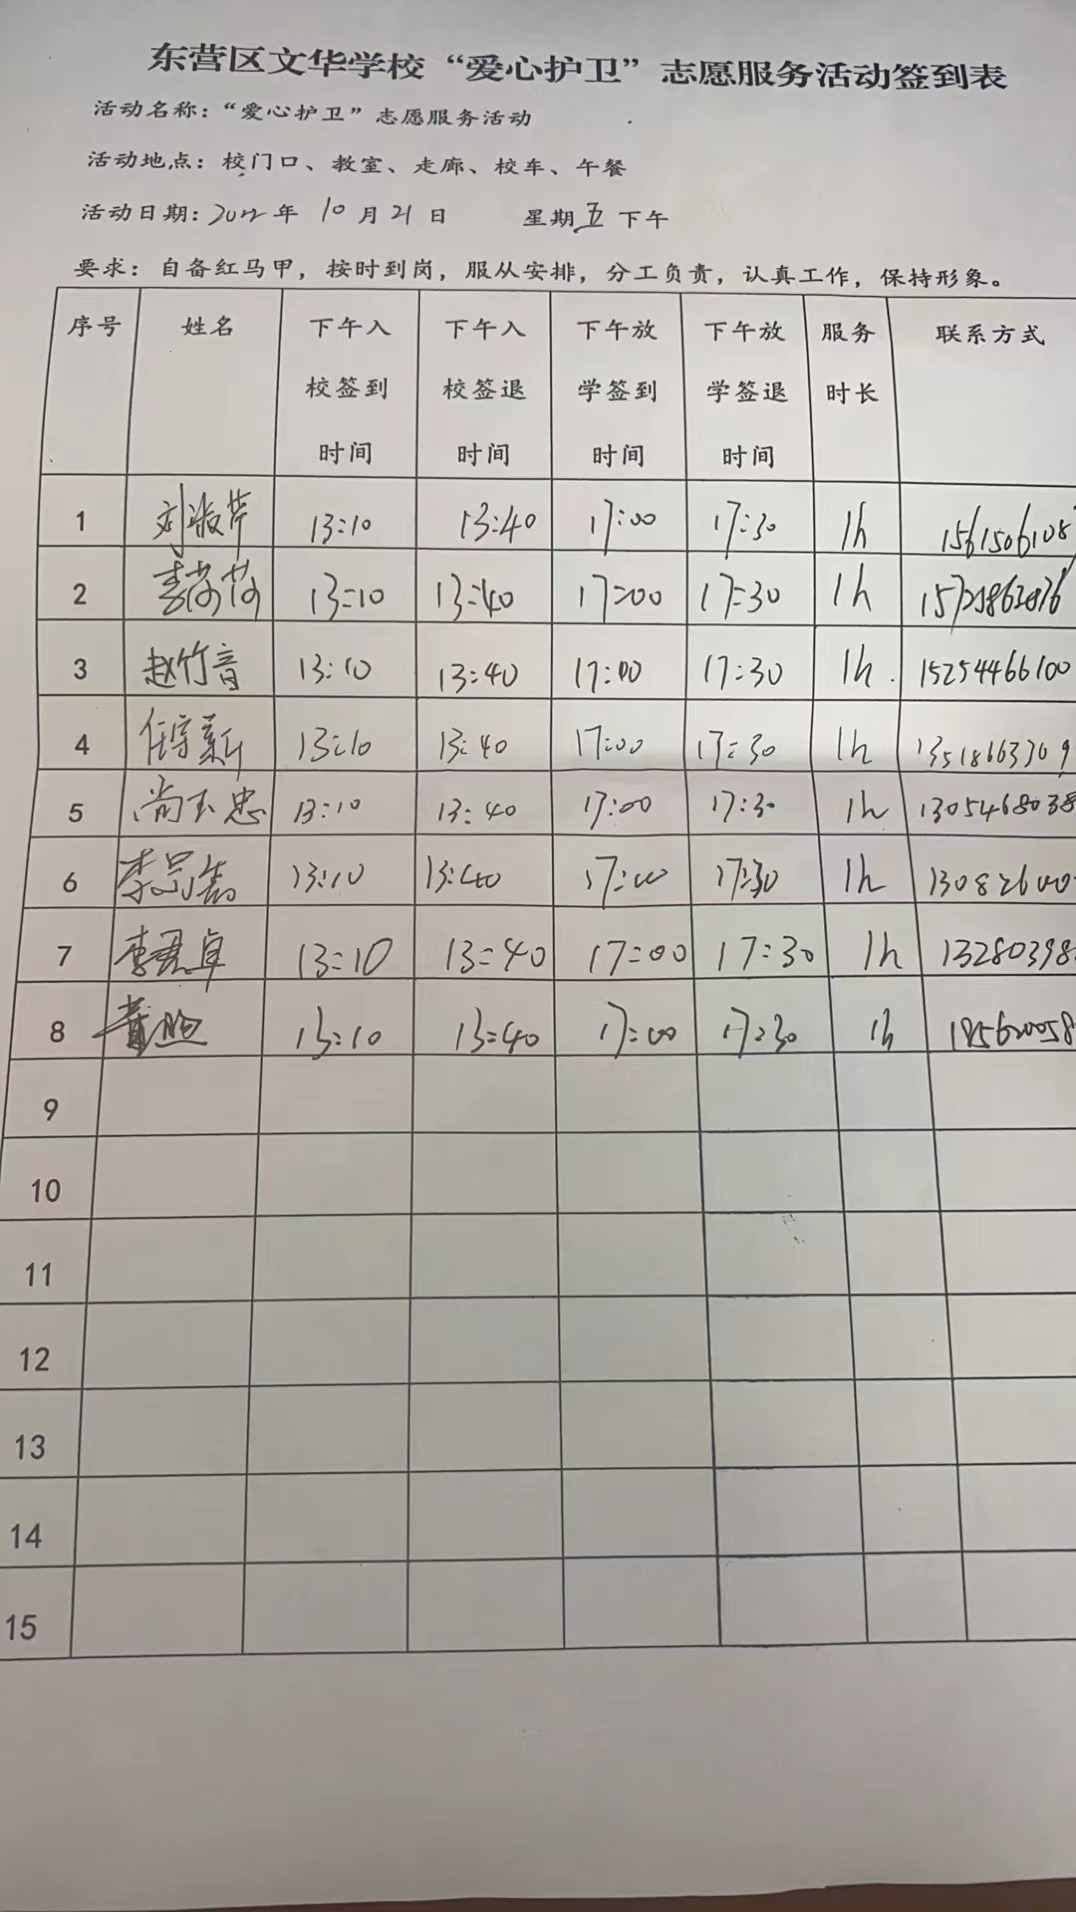 东营区文华学校“爱心护卫”志愿服务活动签到表
活动名称：“爱心护卫”志愿服务活动
活动地点：校门口、教室、走廊、校车、午餐
活动日期：2022年 10月21日 星期五下午
要求：自备红马甲，按时到岗，服从安排，分工负责，认真工作，保持形象。
序号 姓名 下午入校签到时间 下午入校签退时间 下午放学签到时间 下午放学签退时间 服务时长 联系方式
1 刘淑芹 13:10 13:40 17:00 17:30 1h 1561506108
2 李荷荷 13:10 13:40 17:00 17:30 1h
3 赵竹音 13:10 13:40 17:00 17:30 1h. 15254466100
4 任宗新 13:10 13:40 17:00 17:30 1h 13518663309
5 尚玉忠 13:10 13:40 17:00 17:30 1h 1305468038
6 13:10 13:40 17:00 17:30 1h 13082600
7 李君卓 13:10 13:40 17:00 17:30 1h 13280398
8 13:10 13:40 17:00 17:30 1h
9
10
11
12
13
14
15